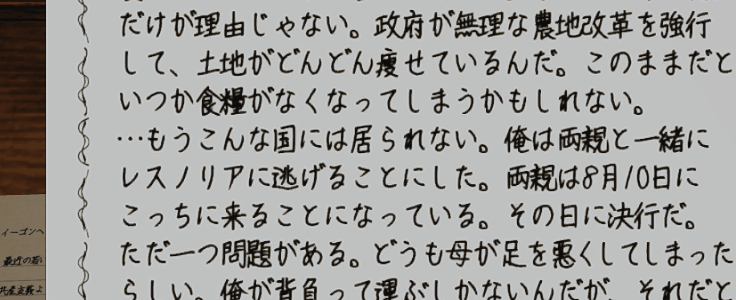 だけが理由じゃない。政府が無理な農地改革を強行
して、土地がどんどん痩せているんだ。このままだと
いつか食糧がなくなってしまうかもしれない。
…もうこんな国には居られない。俺は両親と一緒に
レスノリアに逃げることにした。両親は8月10日に
こっちに来ることになっている。その日に決行だ。
ただ一つ問題がある。どうも母が足を悪くしてしまった
らしい。俺が背負って運ぶしかないんだが、それだと
イーゴンへ
最近の若い
共産主義よ